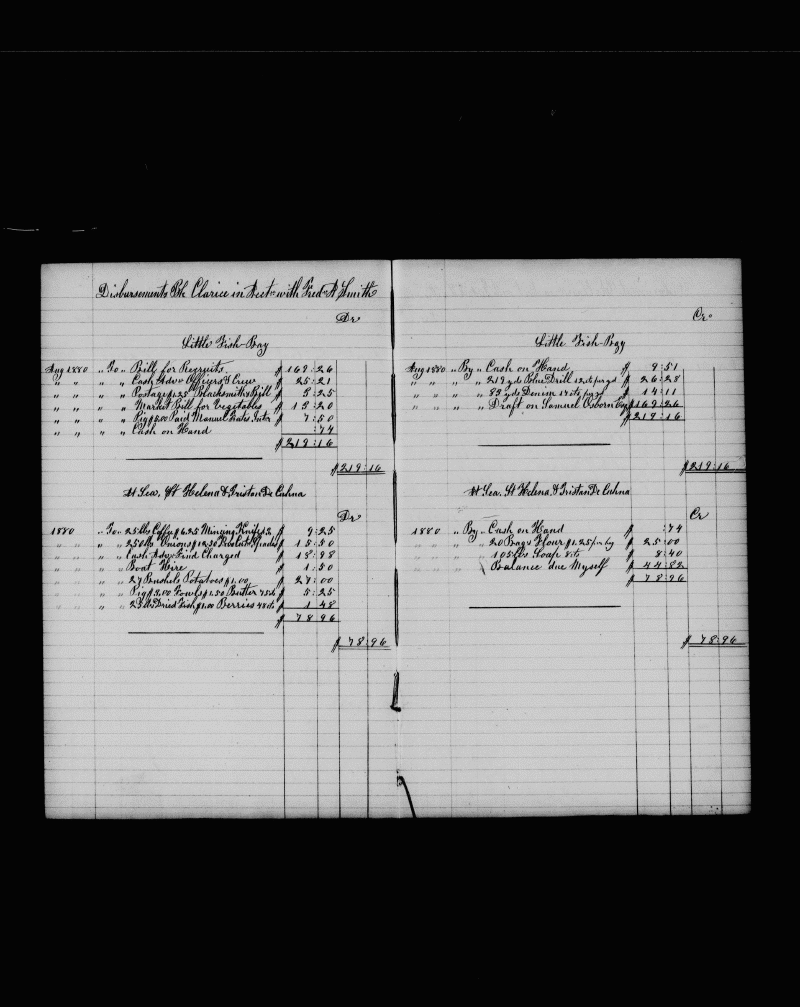 Disbursements Bk Clarice in Acct with Fred A Smith
Dr
Little Fish Bay
Aug 1880 " To " Bill for Recruits $ 169:26
" " " " Cash Advd Officers & Crew " 25:21
" " " " Postage $1.25 Blacksmiths Bill " 3:25
" " " " Market Bill for Vegetables " 13:20
" " " " Pig $5.00 Paid Manuel " 7:50
" " " " Cash on Hand :74
$219:16
$219:16
At Sea, St Helena & Tristan De Cuhna
Dr
1880 " To " 25 lbs Coffee $6.25 Mincing Knife $ 9:25
" " " " 250 lbs Onions $12.50 15:50
" " " " Cash Advd Find Charged " 18:98
" " " " Boat Hire " 1:50
" " " " 27 Bushels Potatoes $1.00 " 27:00
" " " " Pig $3.00 Fowls $1.50 Butter 75cts " 5:25
" " " " 25 lbs Dried Fish $1.00 Berries 48cts " 1 48
$ 78 96
$ 78:96
Cr
Little Fish Bay
Aug 1880 " By " Cash on Hand $ 9:51
" " " " 219 yds Blue Drill 12cts pr yd $ 26:28
" " " " 83 yds Denim 17cts pr yd $ 14:11
" " " " Draft on Samuel Osborn Esq $169:26
$219:16
$219:16
At Sea, St Helena & Tristan De Cuhna
Cr
1880 " By " Cash on Hand $ :74
" " " " 20 Bags Flour $1.25 pr bg $ 25:00
" " " " 105 lbs Soap 8cts $ 8:40
" " Balance due Myself $ 44:82
$ 78:96
$ 78:96